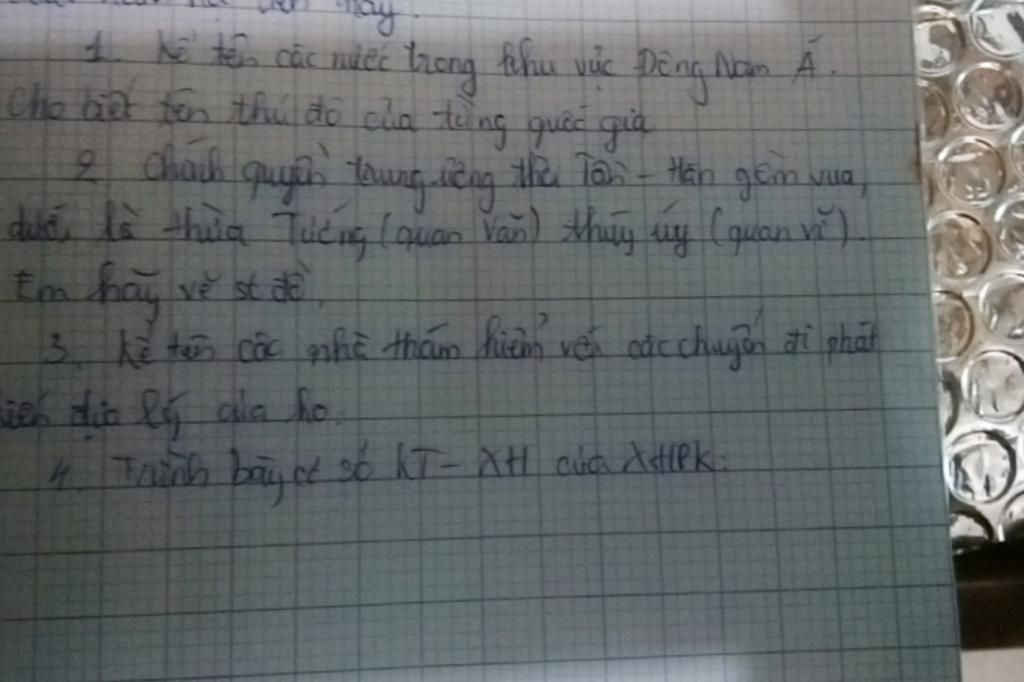 này.
1. Kể tên các nước trong khu vực Đông Nam Á.
Cho biết tên thủ đô của từng quốc gia
2. Chính quyền trung ương thời Tần - Hán gồm vua,
dưới là thừa Tướng (quan văn) thúy úy (quan vĩ).
Em hãy vẽ sơ đồ.
3. Kể tên các nhà thám hiểm với các chuyến đi phát
kiến địa lý của họ.
4. Trình bày cơ sở KT - XH của XHPK.